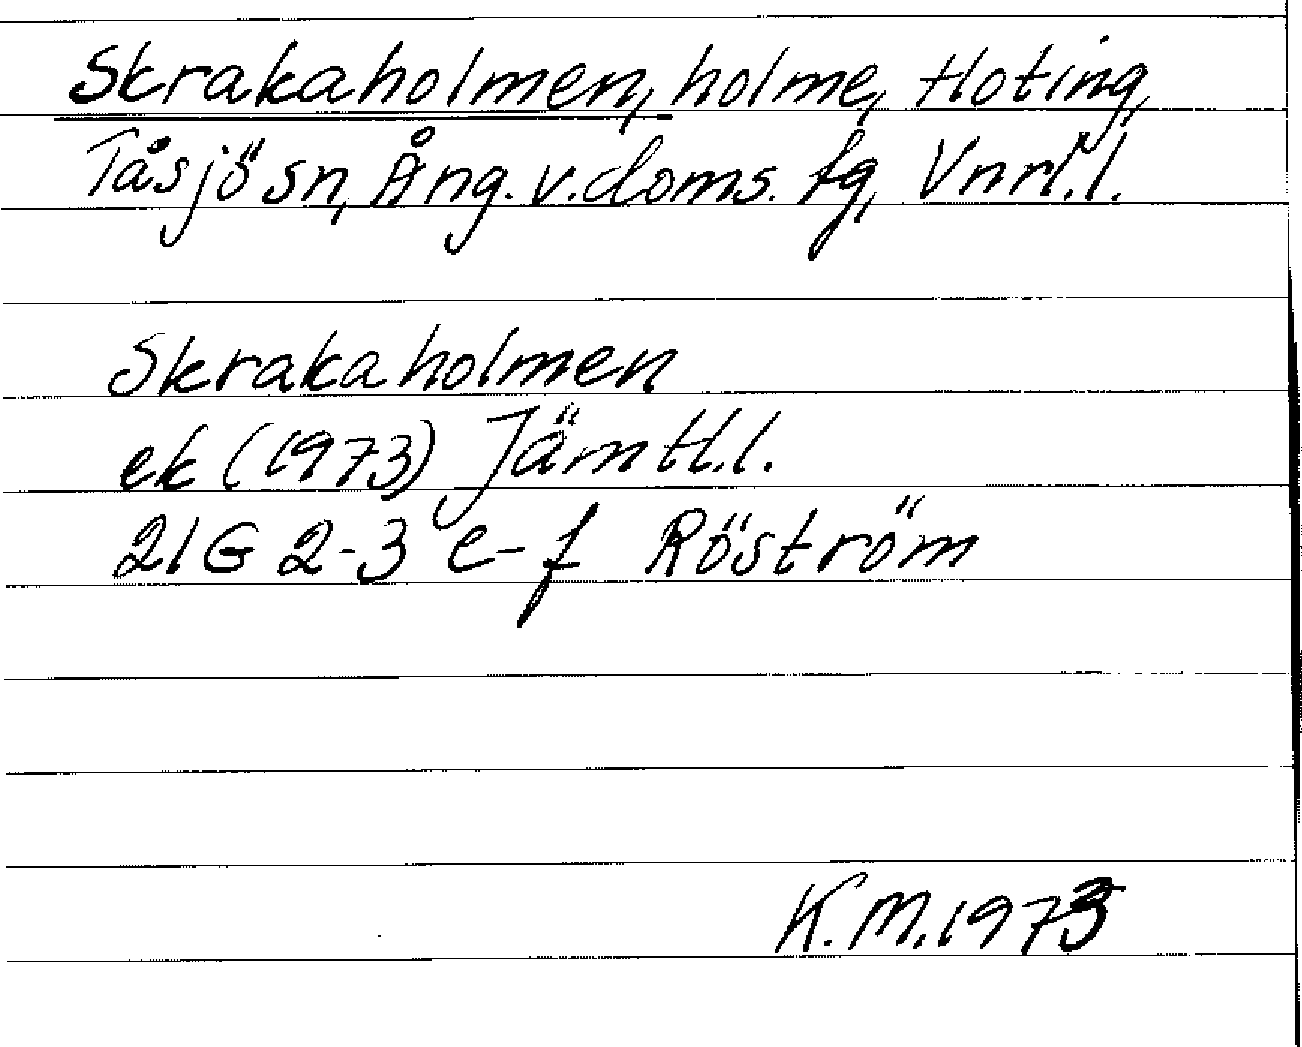 Skrakaholmen, holme, Hoting,
Tåsjö sn, Ång. v. doms. fg, Vnrl. l.
Skrakaholmen
ek (1973) Jämtl. l.
21G 2-3 e-f Röström
K. M. 1973